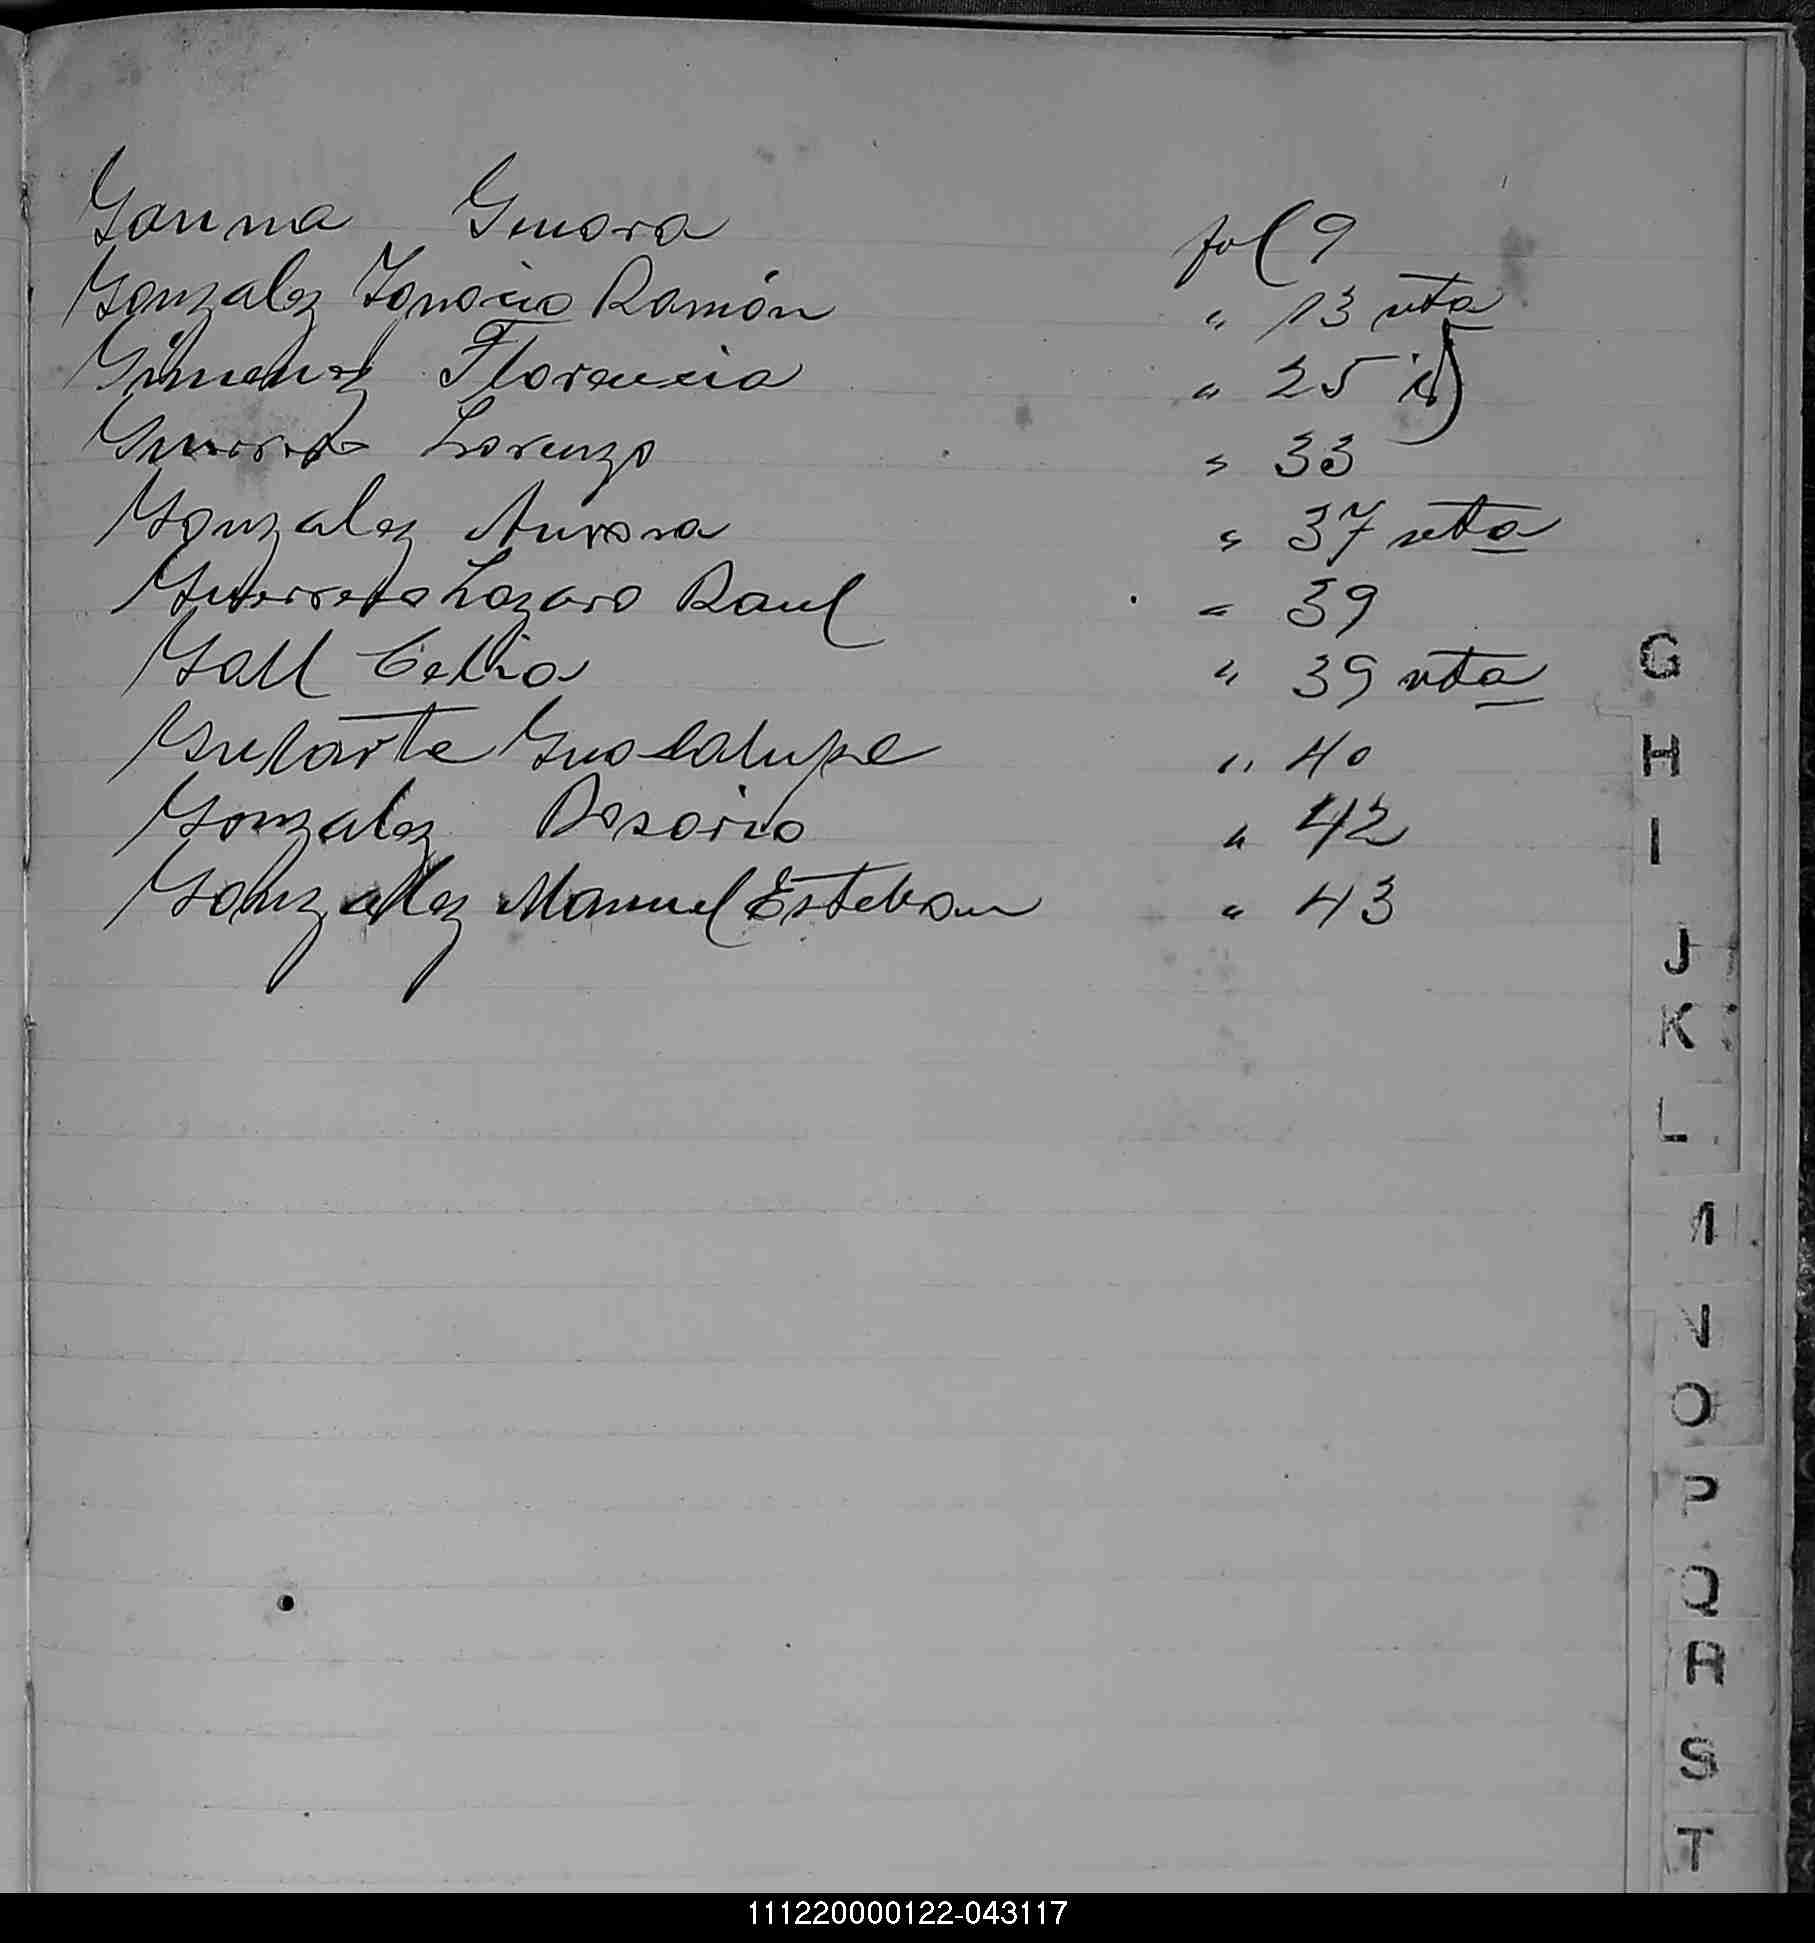 Gauna Genara fol 9
Gonzalez Ignacio Ramón " 13 vta
Gimenez Florencia " 25 id
Guerrero Lorenzo " 33
Gonzalez Aurora " 37 vta
Guerrero Lazaro Raul " 39
Gall Celia " 39 vta
Guadalupe " 40
Gonzalez Rosario " 42
Gonzalez Manuel Esteban " 43
G
H
I
J
K
L
N
O
P
Q
R
S
T
111220000122-043117